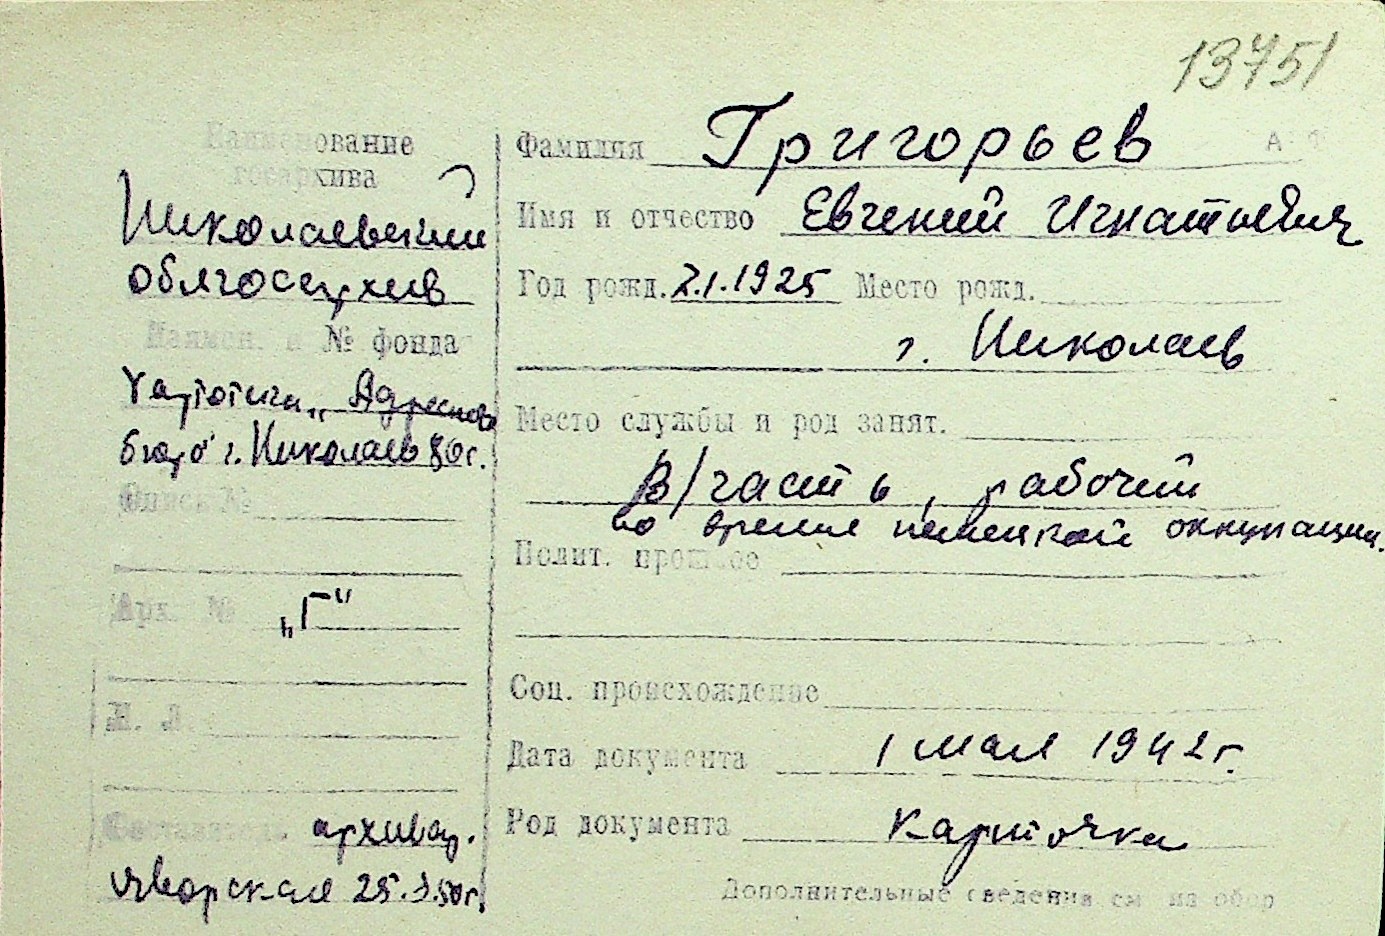 13751
Наименование
госархива
Николаевский
облгосархив
Наимен. и № фонда
Картотека „Адресное
бюро" г. Николаев
Опись №
Арх. № „Г"
Л. Л.
Составитель архивар.
Яворская 25.3.50г.
Фамилия Григорьев
Имя и отчество Евгений Игнатьевич
Год рожд. 7.1.1925 Место рожд.
г. Николаев
Место службы и род занят.
в/часть, рабочий
во время немецкой оккупации.
Полит. прошлое
Соц. происхождение
Дата документа 1 мая 1942 г.
Род документа карточка
Дополнительные сведения см. на обор